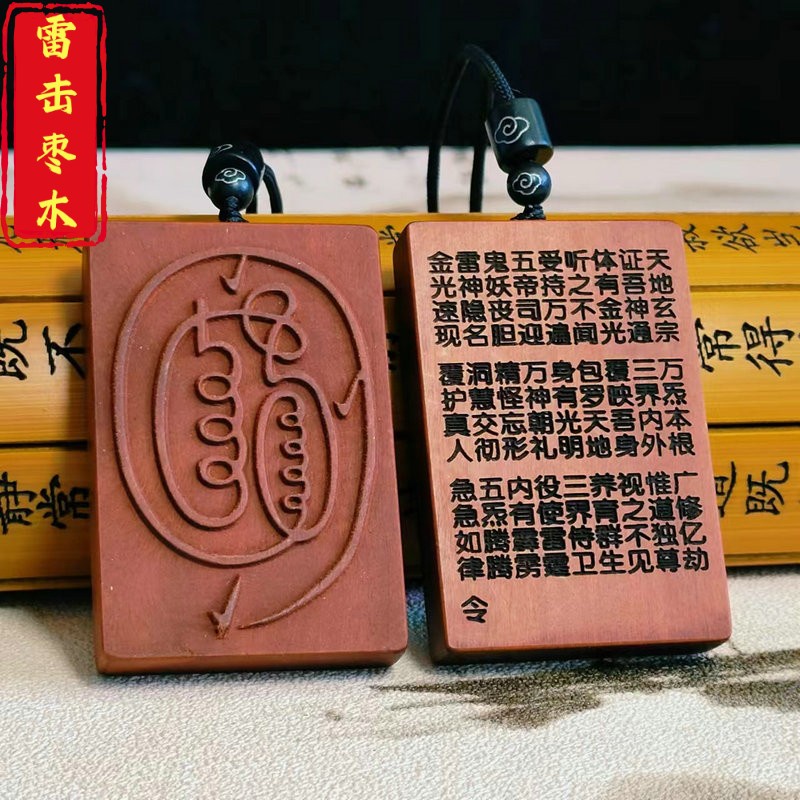 雷击枣木
天地玄宗 万炁本根 广修亿劫
证吾神通 三界内外 惟道独尊
体有金光 覆映吾身 视之不见
听之不闻 包罗天地 养育群生
受持万遍 身有光明 三界侍卫
五帝司迎 万神朝礼 役使雷霆
鬼妖丧胆 精怪忘形 内有霹雳
雷神隐名 洞慧交彻 五炁腾腾
金光速现 覆护真人 急急如律令
既不
常得
静常
既